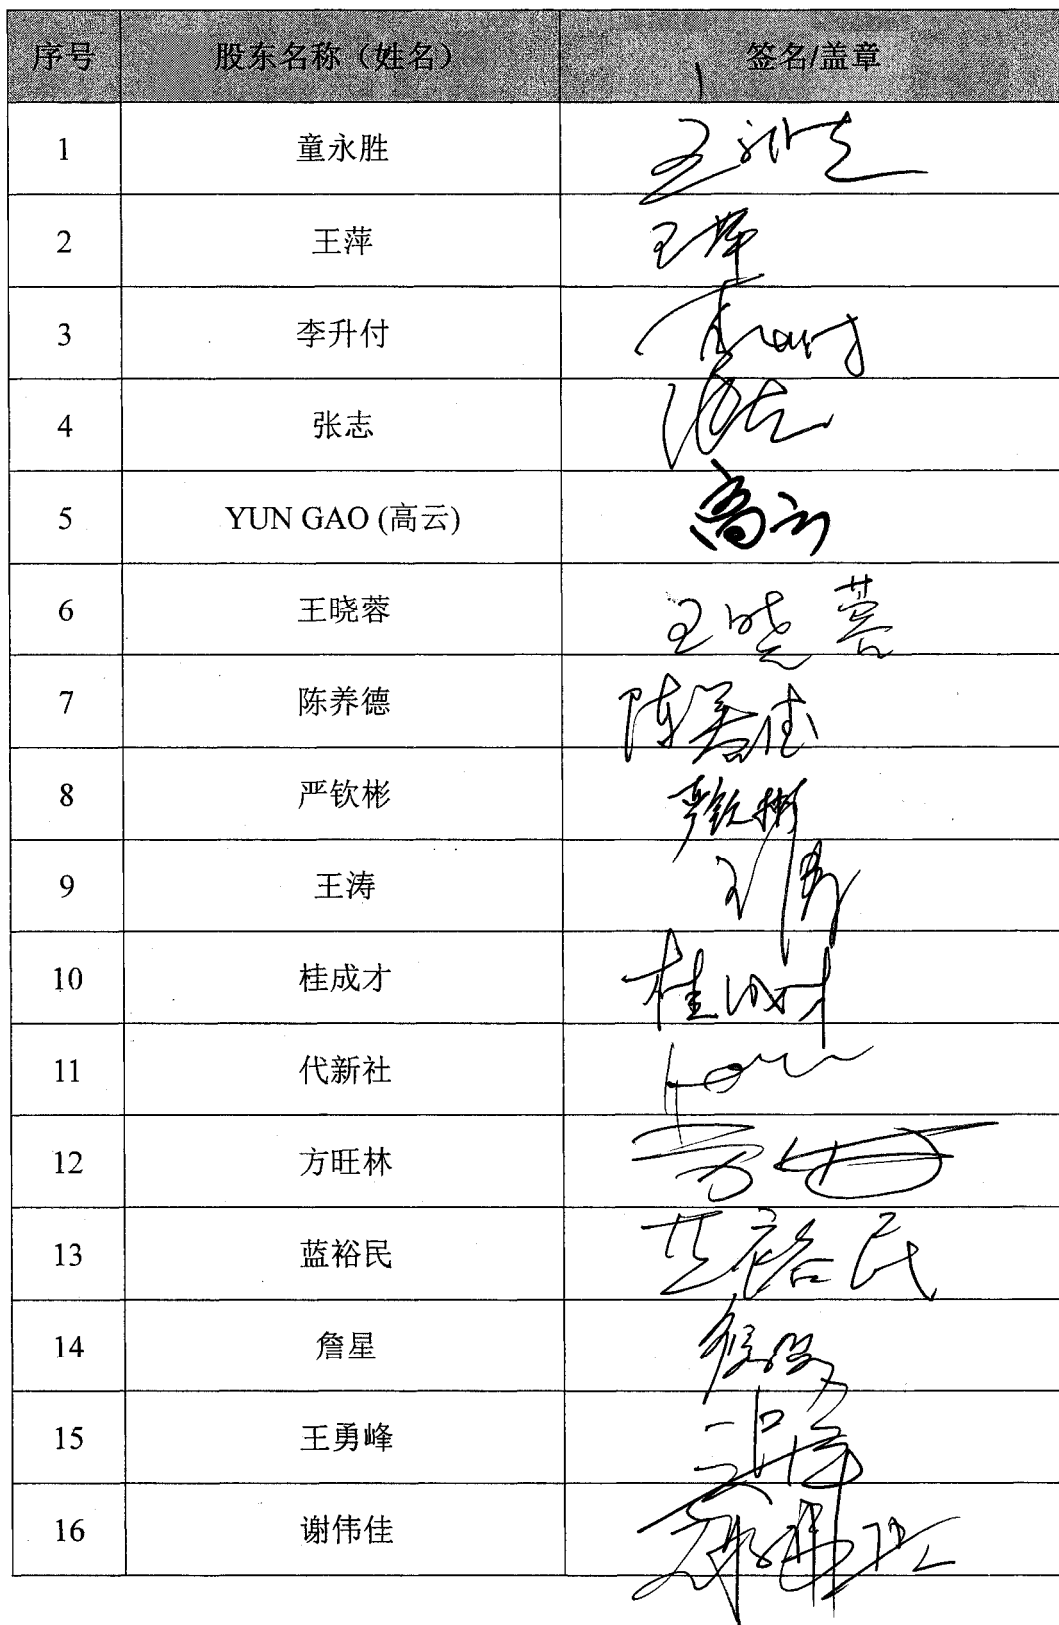 序号 股东名称（姓名） 签名/盖章
1 童永胜
2 王萍 王萍
3 李升付
4 张志
5 YUN GAO (高云) 高云
6 王晓蓉 王晓蓉
7 陈养德 陈养德
8 严钦彬 严钦彬
9 王涛 王涛
10 桂成才 桂成才
11 代新社
12 方旺林
13 蓝裕民 蓝裕民
14 詹星
15 王勇峰
16 谢伟佳